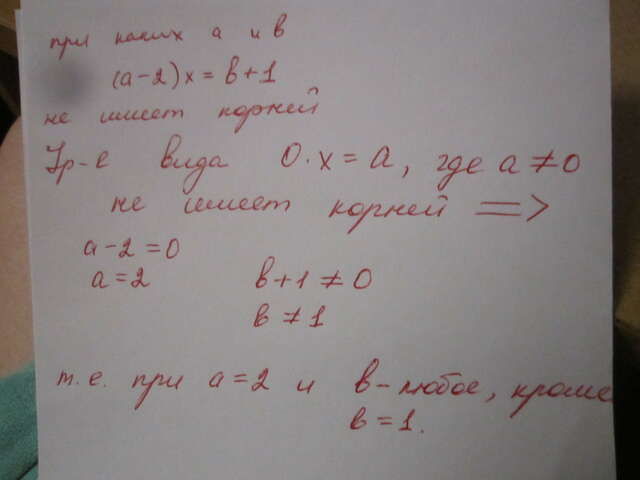 при каких а и в
(а-2)х = в+1
не имеет корней
Ур-е вида 0·х = а, где а ≠ 0
не имеет корней =>
а-2=0
а=2
в+1 ≠ 0
в ≠ 1
т.е. при а=2 и в-любое, кроме
в=1.